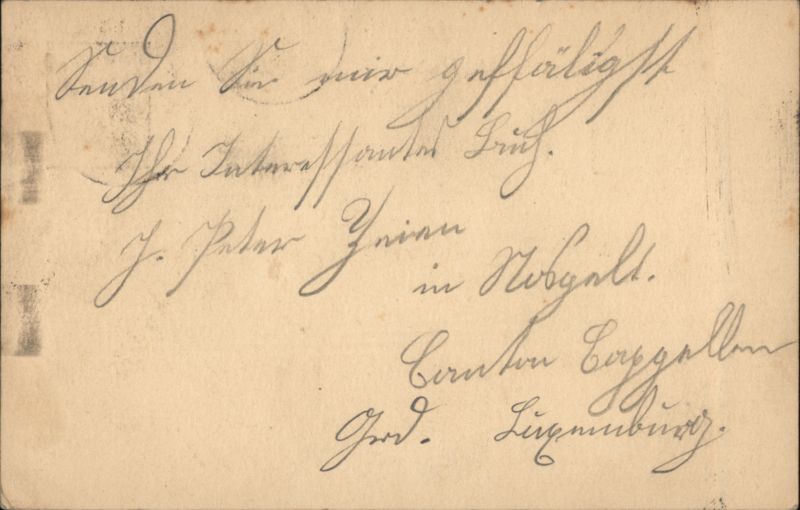 Senden Sie mir geffäligst
Ihr Interessantes Buch.
J. Peter Zeien
in Nospelt.
Canton Cappellen
Grd. Luxemburg.